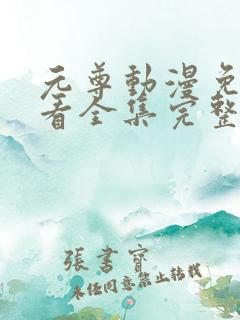 元尊動漫免
看全集完整
張書寶
未经同意禁止转载